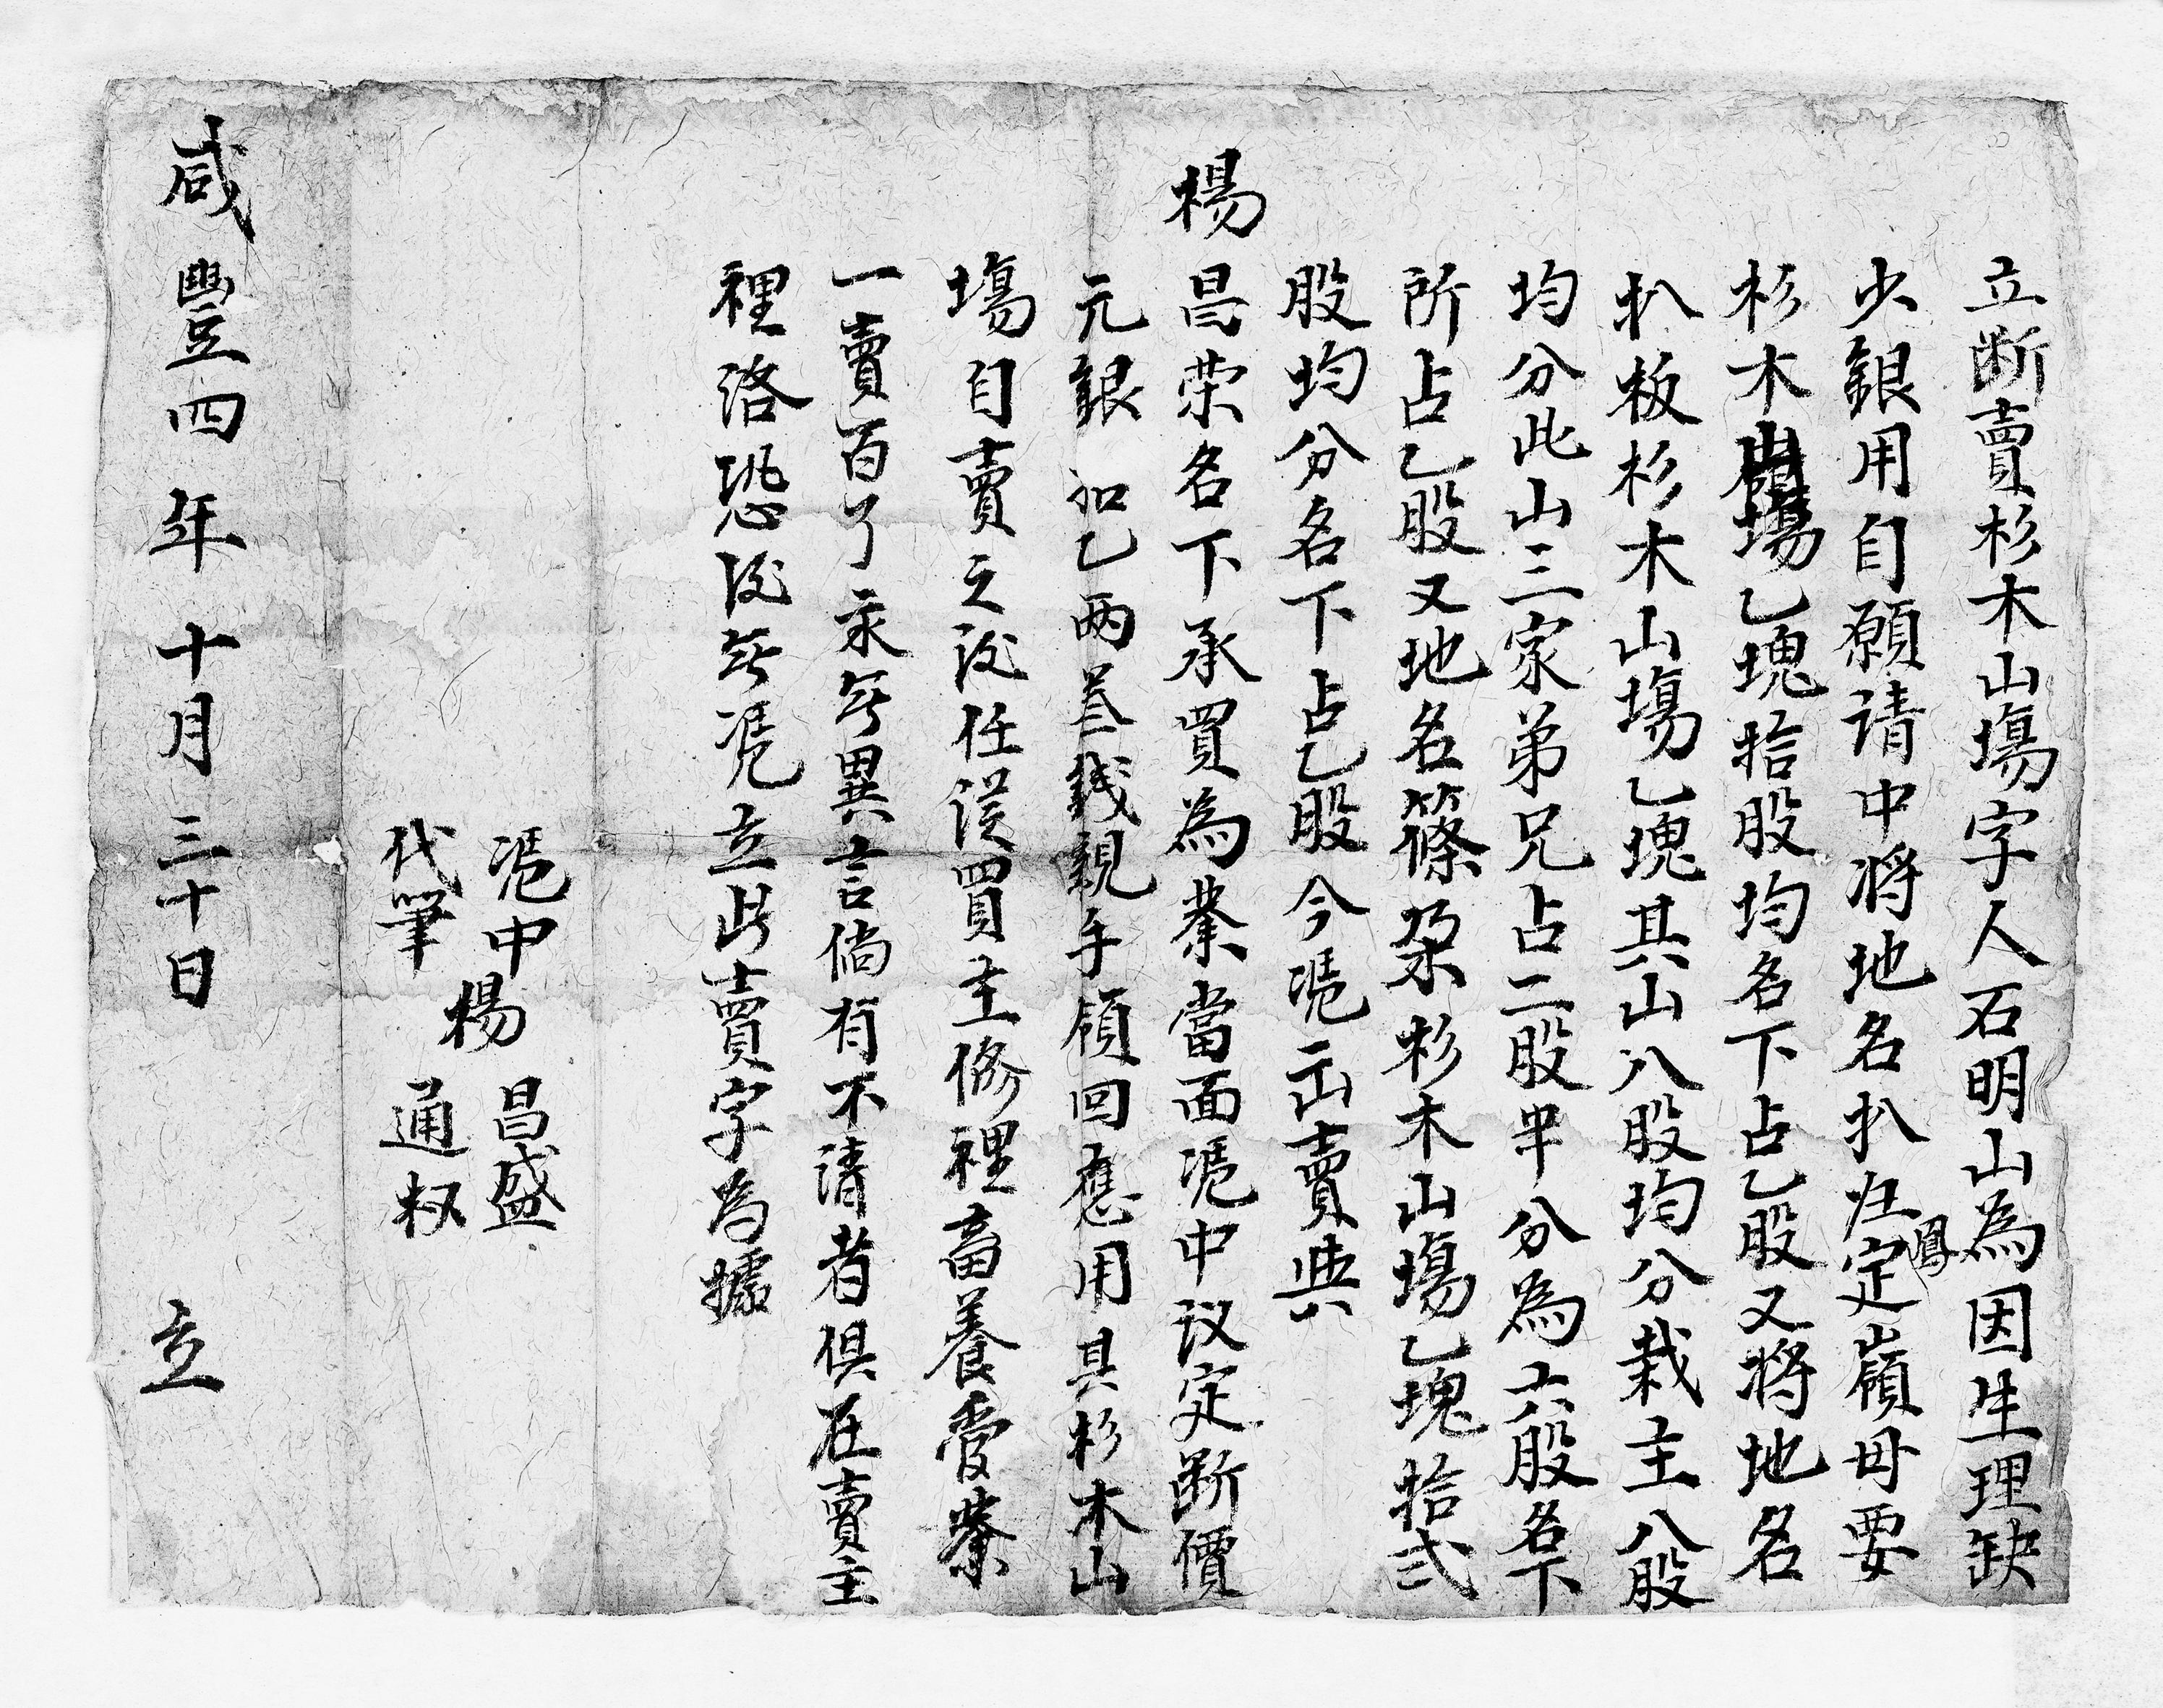 立断賣杉木山塲字人石明山為因生理缺
少銀用自願请中将地名扒㘵定嶺毋要
鳳
杉木山塲乙塊拾股均名下占乙股又將地名
扒板杉木山塲乙塊其山八股均分栽主八股
均分此山三家弟兄占二股半分為六股名下
所占乙股又地名篠朶杉木山塲乙塊拾弍
股均分名下占乙股今憑出賣典
楊昌荣名下承買為業當面憑中议定断價
元銀扣乙两叁錢親手領回應用其杉木山
塲自賣之後任從買主修裡畜養管業
一賣百了永無異言倘有不清者俱在賣主
裡洛恐後無憑立此賣字為據
憑中 楊昌盛
代筆 通权
咸豐四年十月三十日 立